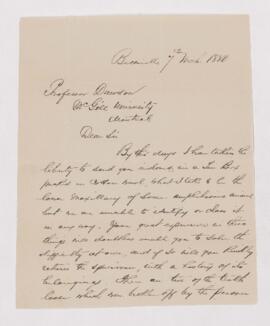 7th Mch 1880
Professor Dawson
McGill University
Montreal
Dear Sir
By this days I have taken the
liberty to send you a bone, in a Tin Box
what I take to be the
of some amphibious animal
but am unable to identify or class it
in any way. Your great experience in these
things will doubtless enable you to solve the
difficulty at once, and if so will you kindly
return the specimen, with a history of its
belongings. There are two of the teeth
loose which were broken off by the person